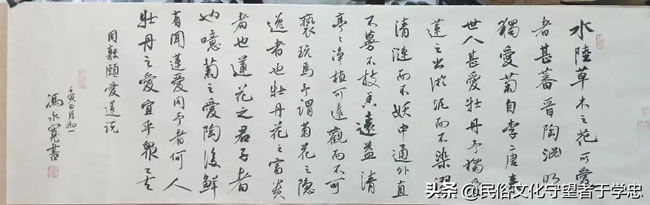 水陸草木之花可愛
者甚蕃晉陶淵明
獨愛菊自李唐來
世人甚愛牡丹予獨愛
蓮之出淤泥而不染濯
清漣而不妖中通外直
不蔓不枝香遠益清
亭々淨植可遠觀而不可
褻玩焉予謂菊花之隱
逸者也牡丹花之富貴
者也蓮花之君子者
也噫菊之愛陶後鮮
有聞蓮愛同予者何人
牡丹之愛宜乎眾矣
周敦頤愛蓮說
壬寅正月初一
馮永寬書
头条@民俗文化守望者于学忠